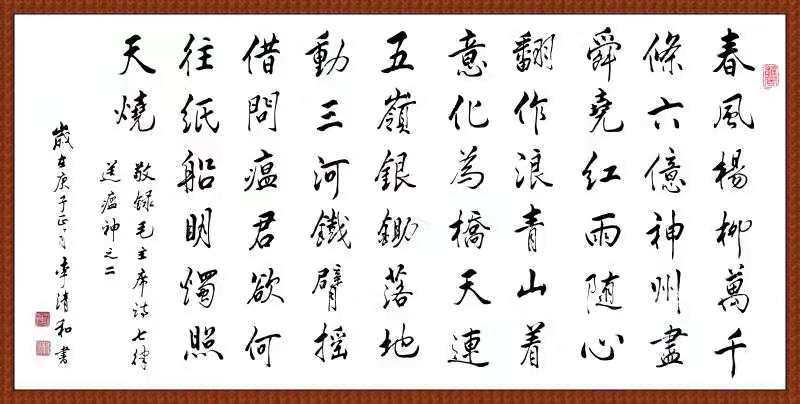 春風楊柳萬千
條六億神州盡
舜堯紅雨随心
翻作浪青山着
意化為橋天連
五嶺銀鋤落地
動三河鐵臂摇
借問瘟君欲何
往紙船明燭照
天燒
敬録毛主席詩七律
送瘟神之二
歲在庚子正月李清和書